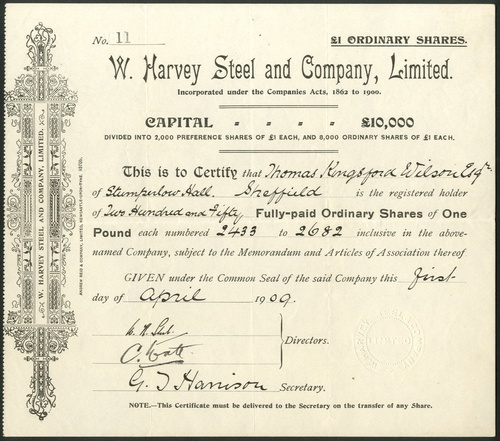 No. 11
£1 ORDINARY SHARES.
W. Harvey Steel and Company, Limited.
Incorporated under the Companies Acts, 1862 to 1900.
CAPITAL £10,000
DIVIDED INTO 2,000 PREFERENCE SHARES OF £1 EACH, AND 8,000 ORDINARY SHARES OF £1 EACH.
This is to Certify that Thomas Kingsford Wilson Esqre
of Stumperlow Hall. Sheffield is the registered holder
of Two Hundred and Fifty Fully-paid Ordinary Shares of One
Pound each numbered 2433 to 2682 inclusive in the above-
named Company, subject to the Memorandum and Articles of Association thereof
GIVEN under the Common Seal of the said Company this first
day of April 1909.
Directors.
G. J. Harrison Secretary.
NOTE.—This Certificate must be delivered to the Secretary on the transfer of any Share.
W. HARVEY STEEL AND COMPANY, LIMITED.
ANDREW REID & COMPANY, LIMITED, NEWCASTLE-UPON-TYNE.